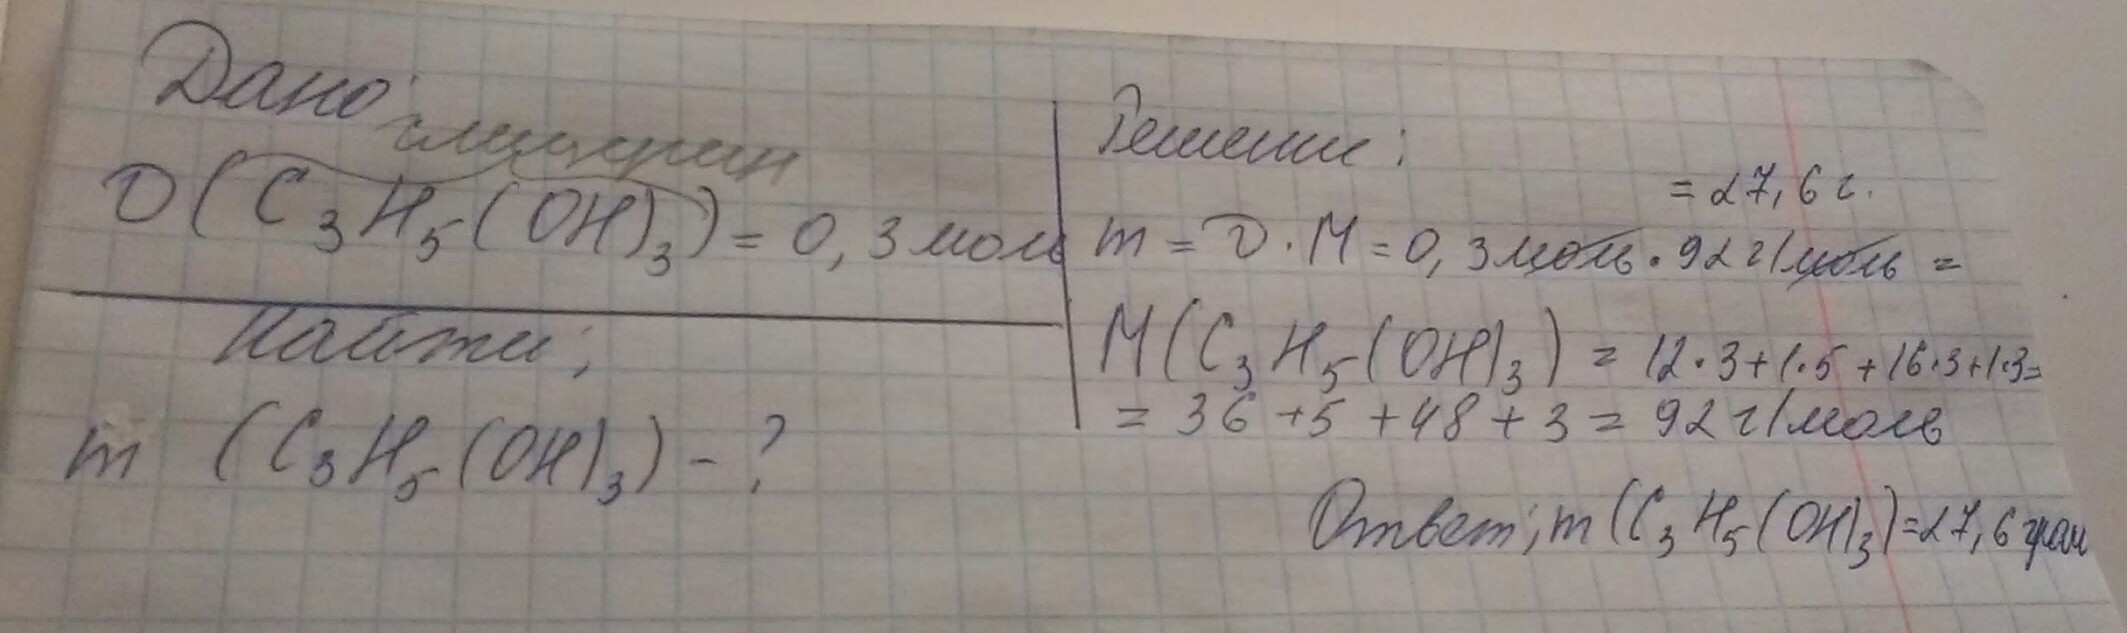 Дано
глицерин
ν(C₃H₅(OH)₃) = 0,3 моль
Найти:
m (C₃H₅(OH)₃) - ?
Решение:
= 27,6 г.
m = ν · M = 0,3 моль · 92 г/моль =
M(C₃H₅(OH)₃) = 12·3+1·5+16·3+1·3=
= 36 +5 +48 + 3 = 92 г/моль
Ответ: m (C₃H₅(OH)₃)=27,6 грам